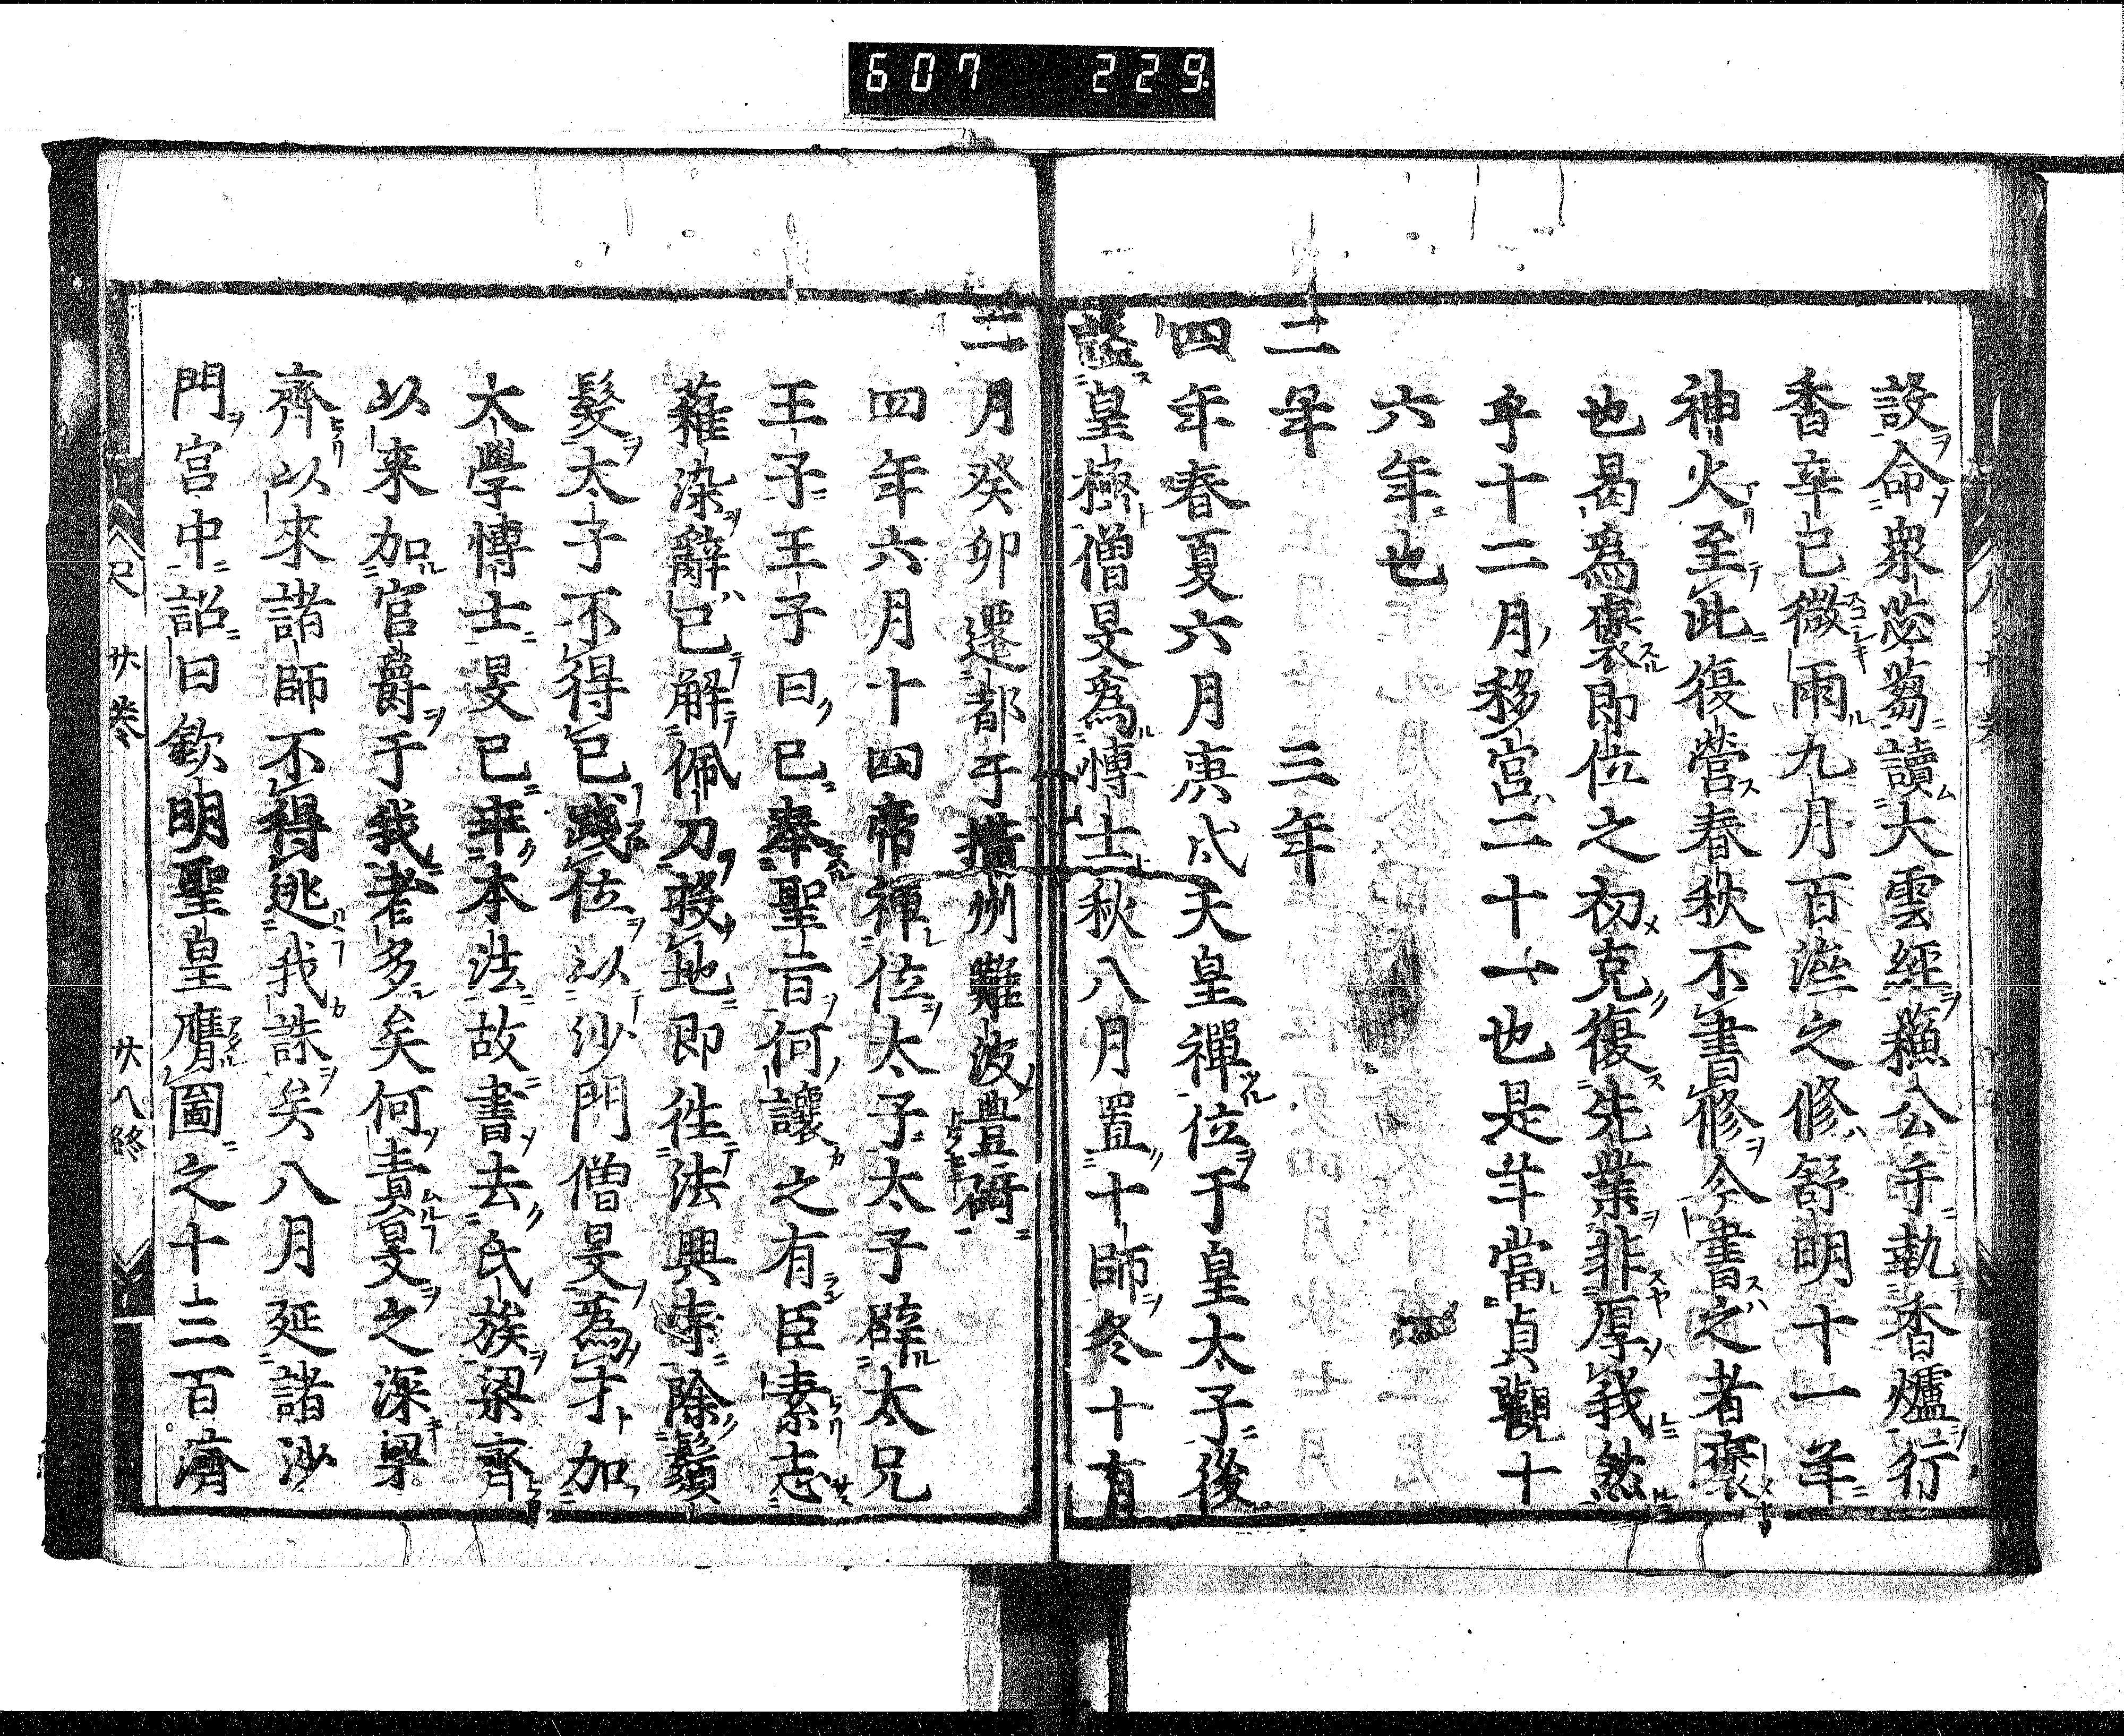 607 229
設命衆苾蒭讀大雲經蘓公手執香爐行
香辛巳微雨九月百濟之修舒明十一年
神火至此復營春秋不書修今書之者褒
也曷為褒即位之初克復先業非厚我然
乎十二月移宮二十一也是年當貞觀十
六年也
二年 三年
四年春夏六月庚戌天皇禪位于皇太子後
謚皇極僧旻爲博士秋八月置十師冬十有
二月癸卯遷都于攝州難波豊碕
四年六月十四帝禪位太子太子辟太兄
王子王子曰已奉聖旨何讓之有臣素志
薙染辭已解佩刀投地即徃法興寺除鬚
髮太子不得已踐位以沙門僧旻為才加
太學博士旻已年本法故書去氏族梁齊
以来加官爵于我者多矣何責旻之深梁
齊以來諸師不得逃我誅矣八月延諸沙
門宮中詔曰欽明聖皇膺圖之十三百濟
尺 廿卷 廿八終